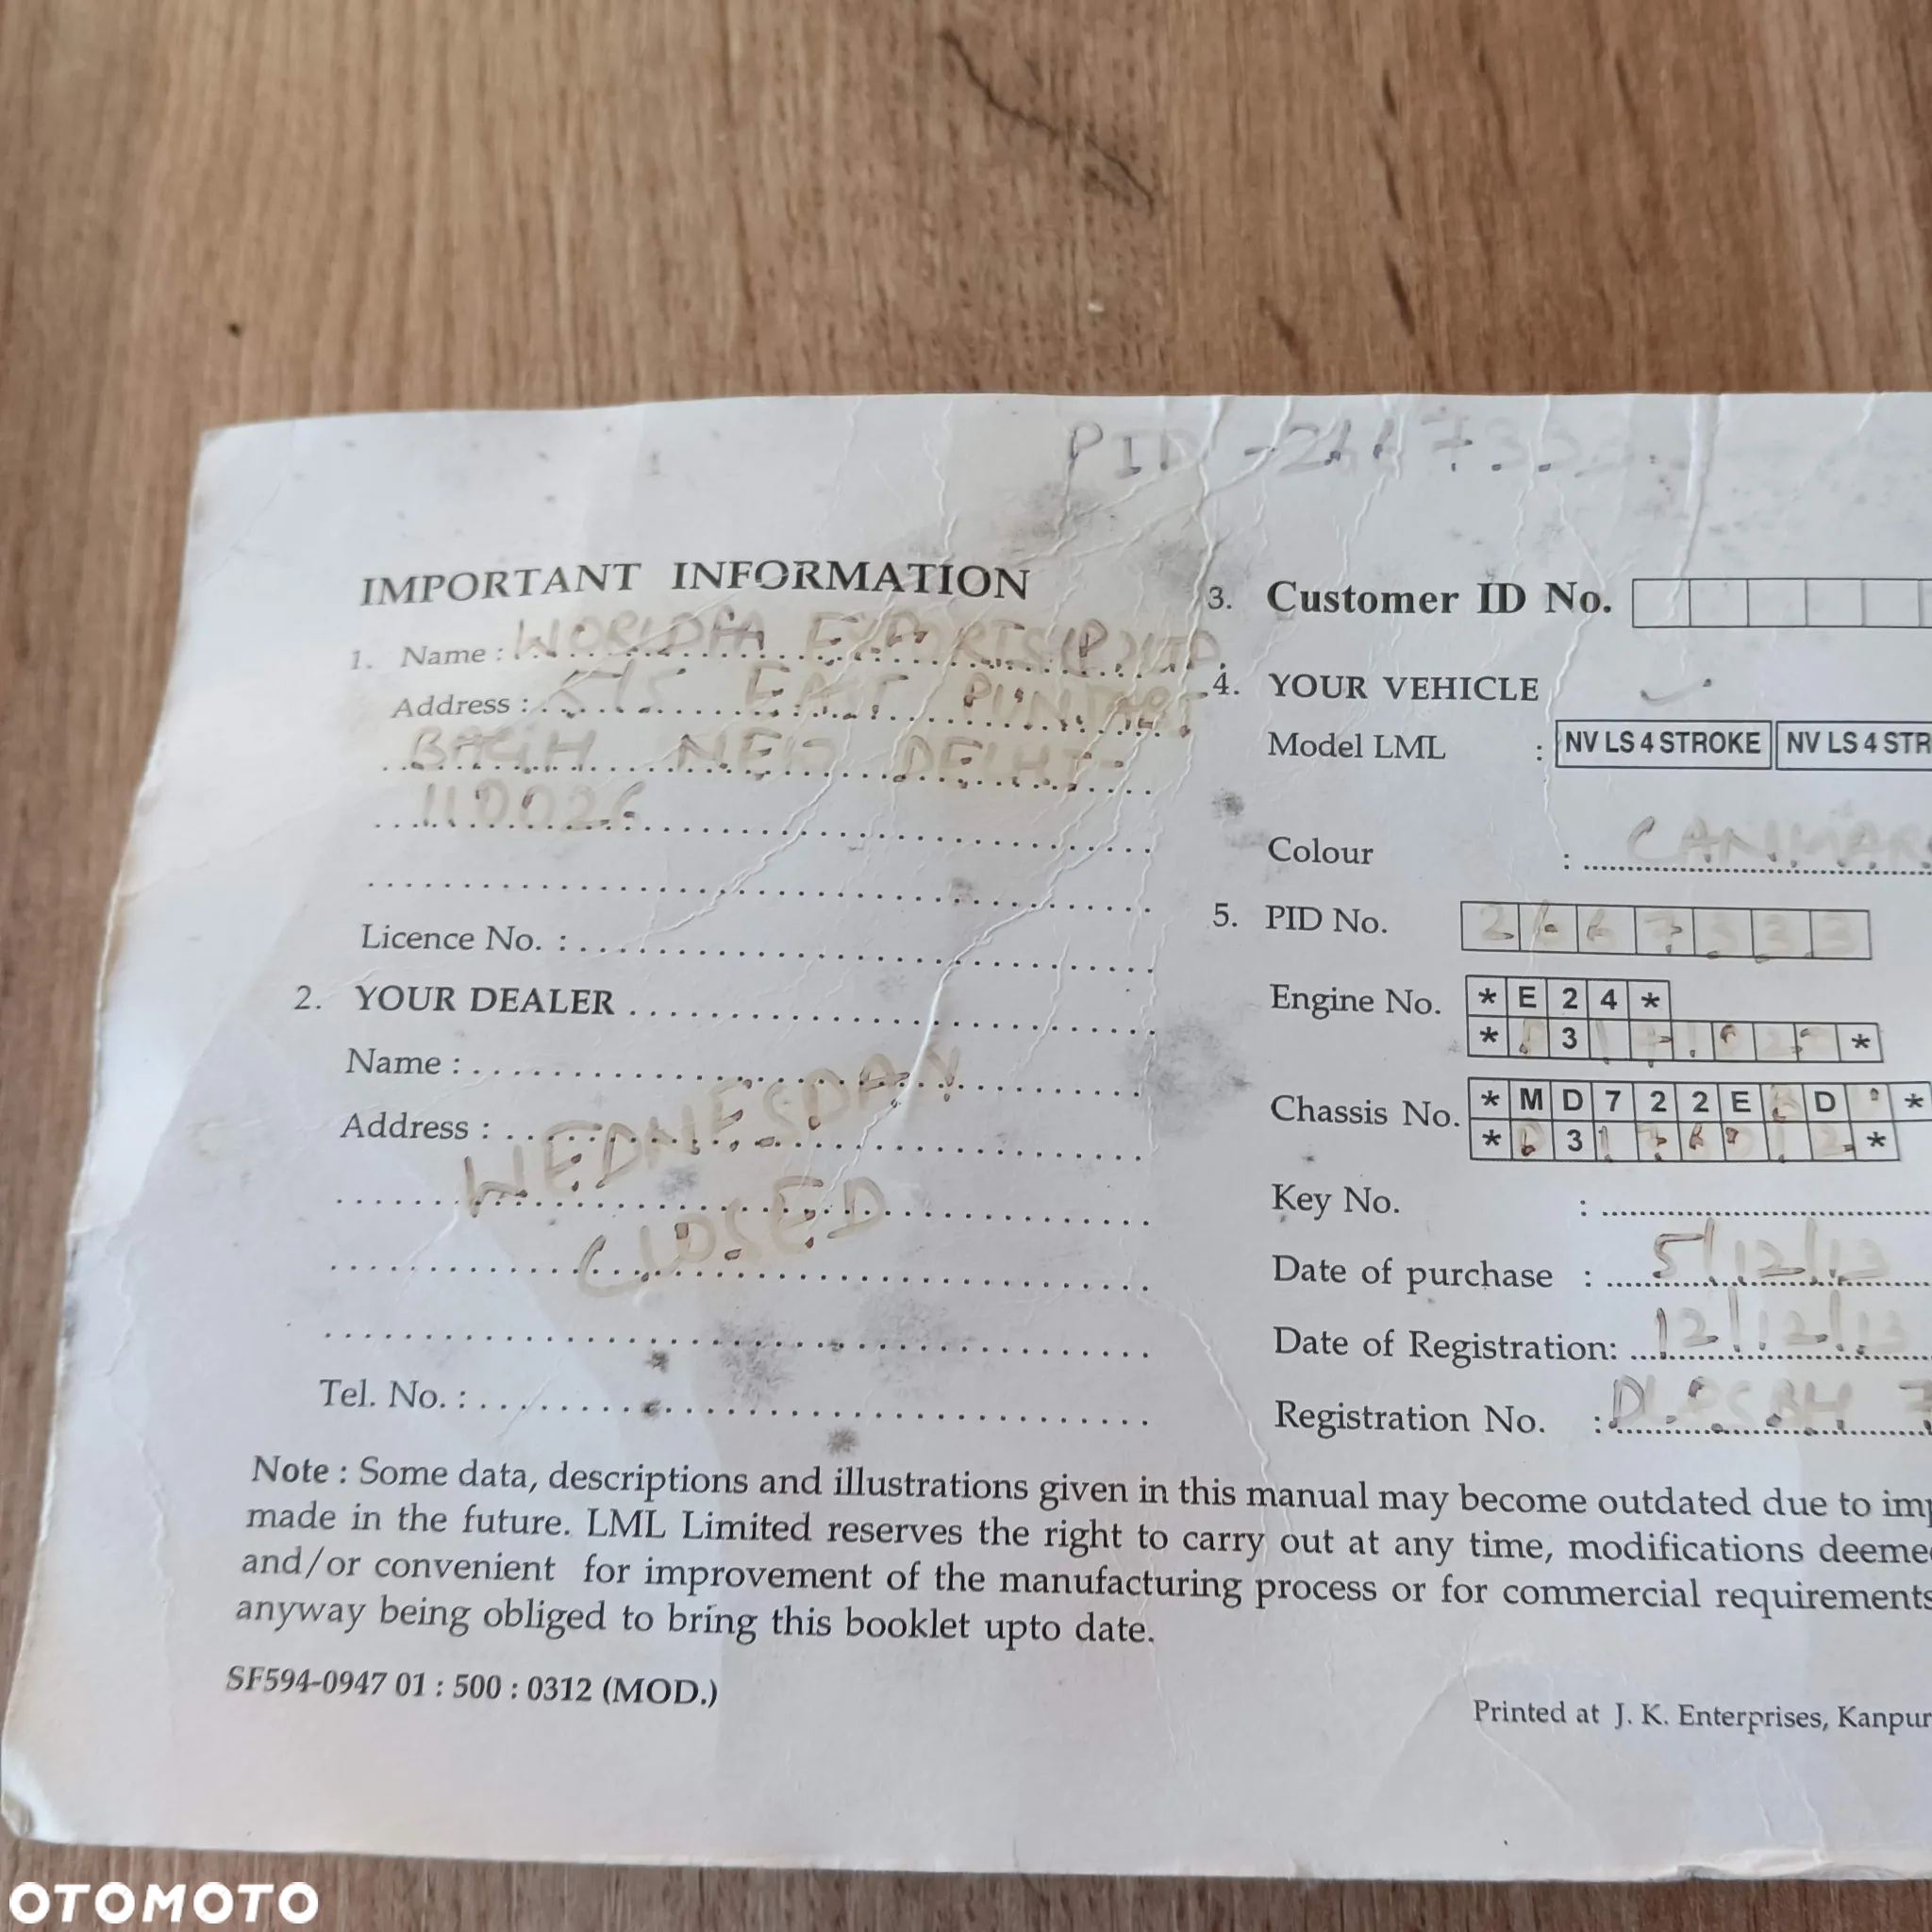 PID - 2667333
IMPORTANT INFORMATION
1. Name : WORLDFA EXPORTS (P) LTD
Address : EAST PUNJABI
BAGH NEW DELHI-
110026
Licence No. :
2. YOUR DEALER
Name :
Address :
WEDNESDAY
CLOSED
Tel. No. :
3. Customer ID No.
4. YOUR VEHICLE
Model LML : NV LS 4 STROKE NV LS 4 STR
Colour :
5. PID No. 2667333
Engine No. * E 2 4 *
* 3 *
Chassis No. * M D 7 2 2 E D *
* 3 *
Key No. :
Date of purchase : 5/12/13
Date of Registration: 12/12/13
Registration No. :
Note : Some data, descriptions and illustrations given in this manual may become outdated due to imp
made in the future. LML Limited reserves the right to carry out at any time, modifications deeme
and/or convenient for improvement of the manufacturing process or for commercial requirements
anyway being obliged to bring this booklet upto date.
SF594-0947 01 : 500 : 0312 (MOD.)
Printed at J. K. Enterprises, Kanpur
OTOMOTO